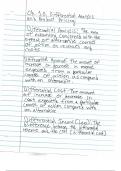 Ch. 10: Differential Analysis
and Product Pricing
Differential Analysis: The area
of accounting concerned with the
effect of alternative courses
of action on revenues and
costs.
Differential Revenue: The amount of
increase or decrease in revenue
expected from a particular
course of action as compared
with an alternative.
Differential Cost: The amount
of increase or decrease in
cost expected from a particular
course of action compared with
an alternative.
Differential Income (Loss): The
difference between the differential
revenue and the